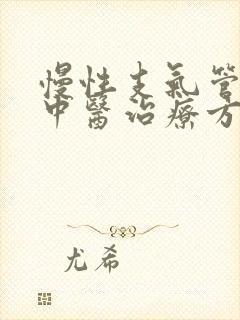 慢性支氣管
中醫治療方
尤希